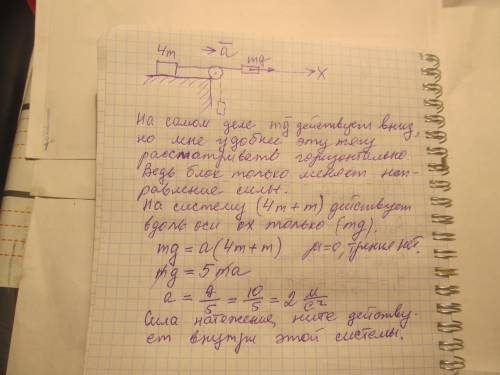 4m → a̅ mg
X
На самом деле mg̅ действует вниз,
но мне удобнее эту тягу
рассматривать горизонтально.
Ведь блок только меняет нап-
равление силы.
На систему (4m+m) действует
вдоль оси ox только (mg).
mg = a(4m+m) μ=0, трения нет.
mg = 5ma
a = g/5 = 10/5 = 2 м/с²
Сила натажения, ните действу-
ет внутри этой системы.